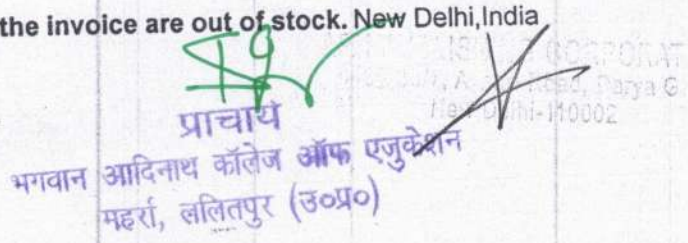 the invoice are out of stock. New Delhi,India
Darya G
New Delhi-110002
प्राचार्य
भगवान आदिनाथ कॉलेज ऑफ एजुकेशन
महर्रा, ललितपुर (उ०प्र०)